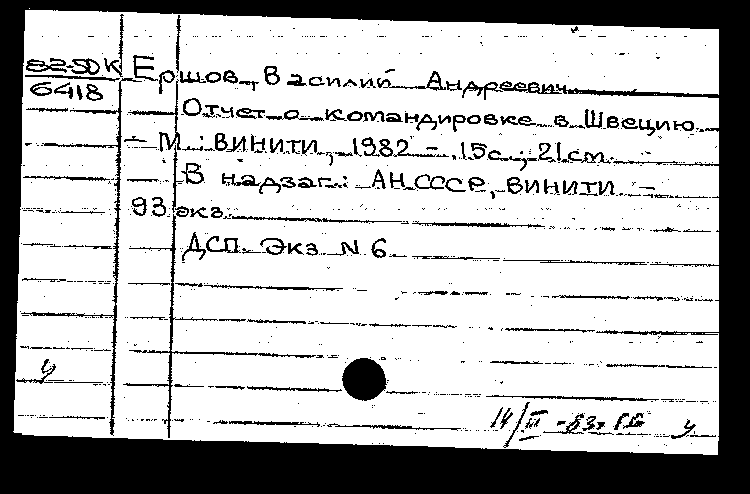 82-5DK
6418
Ершов, Василий Андреевич
Отчет о командировке в Швецию
- М.: ВИНИТИ, 1982 - 15с.; 21см.
В надзаг.: АН СССР, ВИНИТИ -
93 экз.
ДСП. Экз N 6
у
14/III -83г у